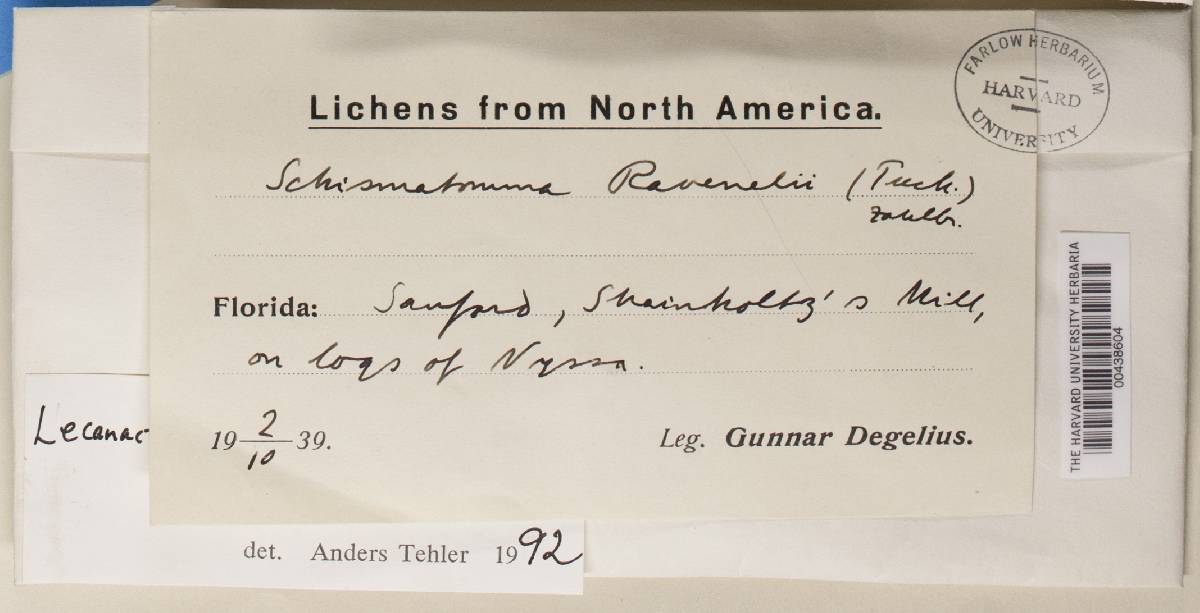 FARLOW HERBARIUM
HARVARD
UNIVERSITY
Lichens from North America.
Schismatomma Ravenelii (Tuck.)
Zahlbr.
Florida: Sanford, Shainholtz's Mill,
on logs of Nyssa.
19 2/10 39.
Leg. Gunnar Degelius.
Lecanac
det. Anders Tehler 1992
THE HARVARD UNIVERSITY HERBARIA
00438604